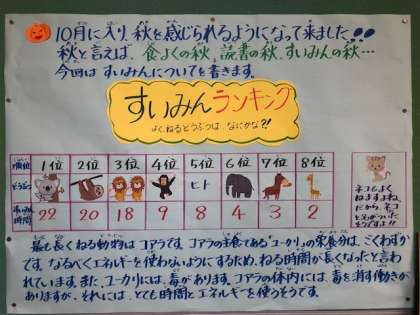 10月に入り、秋を感じられるようになって来ました!!
秋と言えば、食よくの秋、読書の秋、すいみんの秋…
今回は すいみんについてを書きます。
すいみんランキング
よくねるどうぶつは、なにかな?!
順位 1位 2位 3位 4位 5位 6位 7位 8位
どうぶつ ヒト
時間 22 20 18 9 8 4 3 2
ネコもよく
ねますよね。
だから、ネコ
と名がついた
そうですよ!!
最も長くねる動物は コアラです。コアラの主食である"ユーカリ"の栄養分は、ごくわずか
です。なるべくエネルギーを使わないようにするため、ねる時間が長くなったと言わ
れています。また、ユーカリには、毒があります。コアラの体内には、毒を消す働きが
ありますが、それには、とても時間とエネルギーを使うそうです。